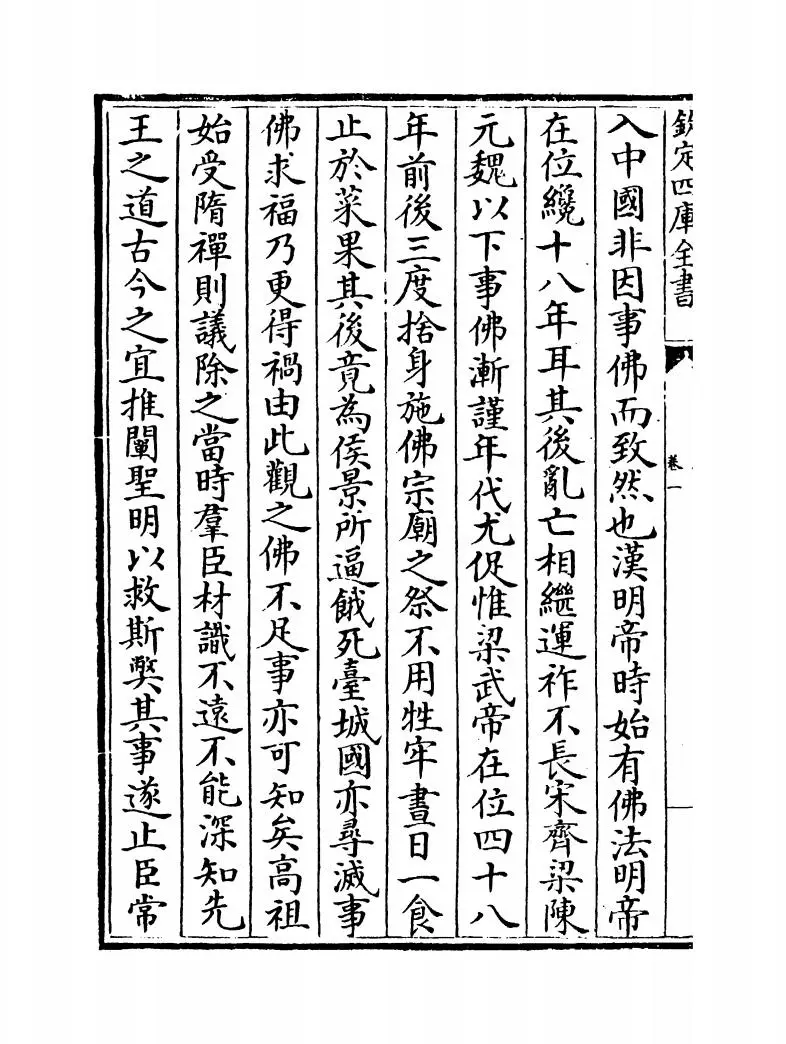 欽定四庫全書
卷一
入中國非因事佛而致然也漢明帝時始有佛法明帝
在位纔十八年耳其後亂亡相繼運祚不長宋齊梁陳
元魏以下事佛漸謹年代尤促惟梁武帝在位四十八
年前後三度捨身施佛宗廟之祭不用牲牢晝日一食
止於菜果其後竟為侯景所逼餓死臺城國亦尋滅事
佛求福乃更得禍由此觀之佛不足事亦可知矣高祖
始受隋禪則議除之當時羣臣材識不遠不能深知先
王之道古今之宜推闡聖明以救斯獘其事遂止臣常